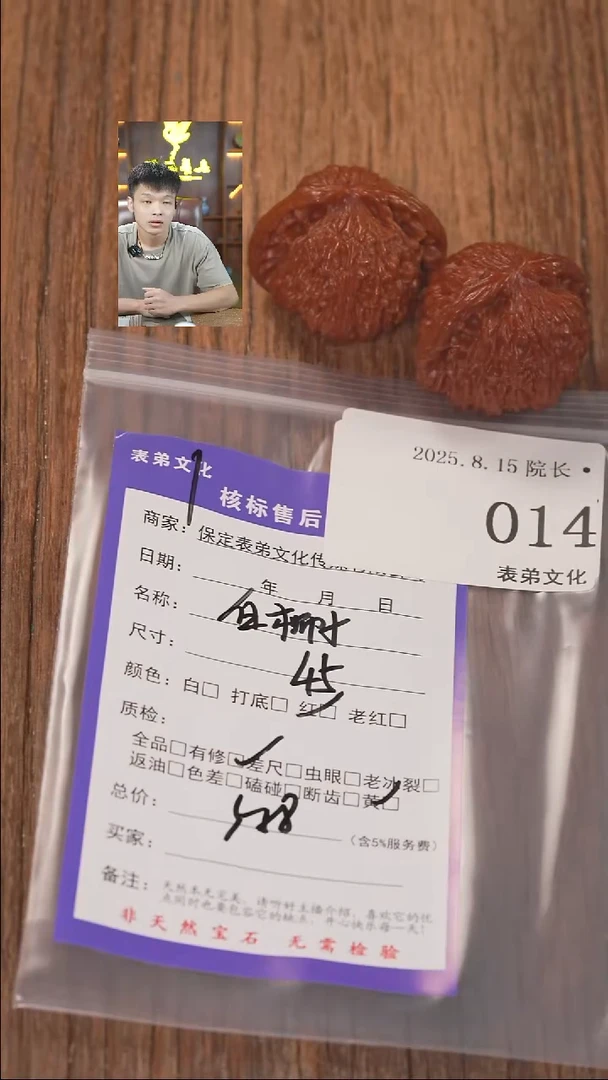 2025.8.15 院长 •
014
表弟文化
表弟文化
核标售后
商家：保定表弟文化传
日期： 年 月 日
名称：
尺寸： 45
颜色：白□ 打底□ 红□ 老红□
质检：
全品□有修□差尺□虫眼□老冰裂□
返油□色差□磕碰□断齿□黄□
总价： 528 （含5%服务费）
买家：
备注：天然本无完美，请听好主播介绍，喜欢它的优
点同时也要包容它的缺点，开心快乐每一天！
非天然宝石 无需检验